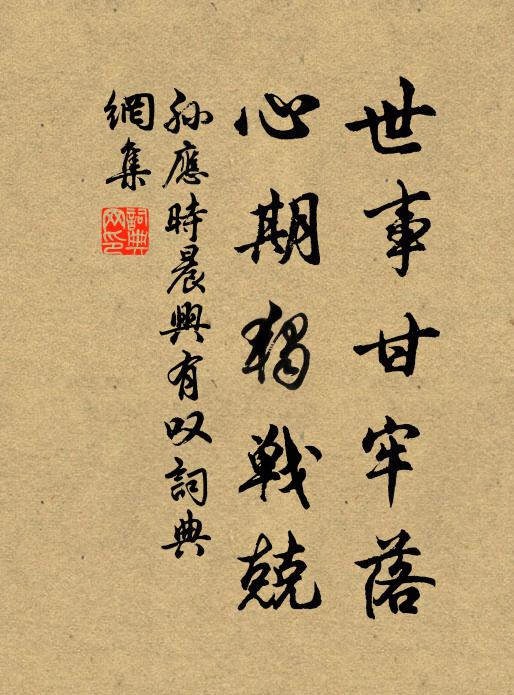 世事甘牢落
心期独戦兢
孙應時晨興有叹詞典
網集
詞典網印